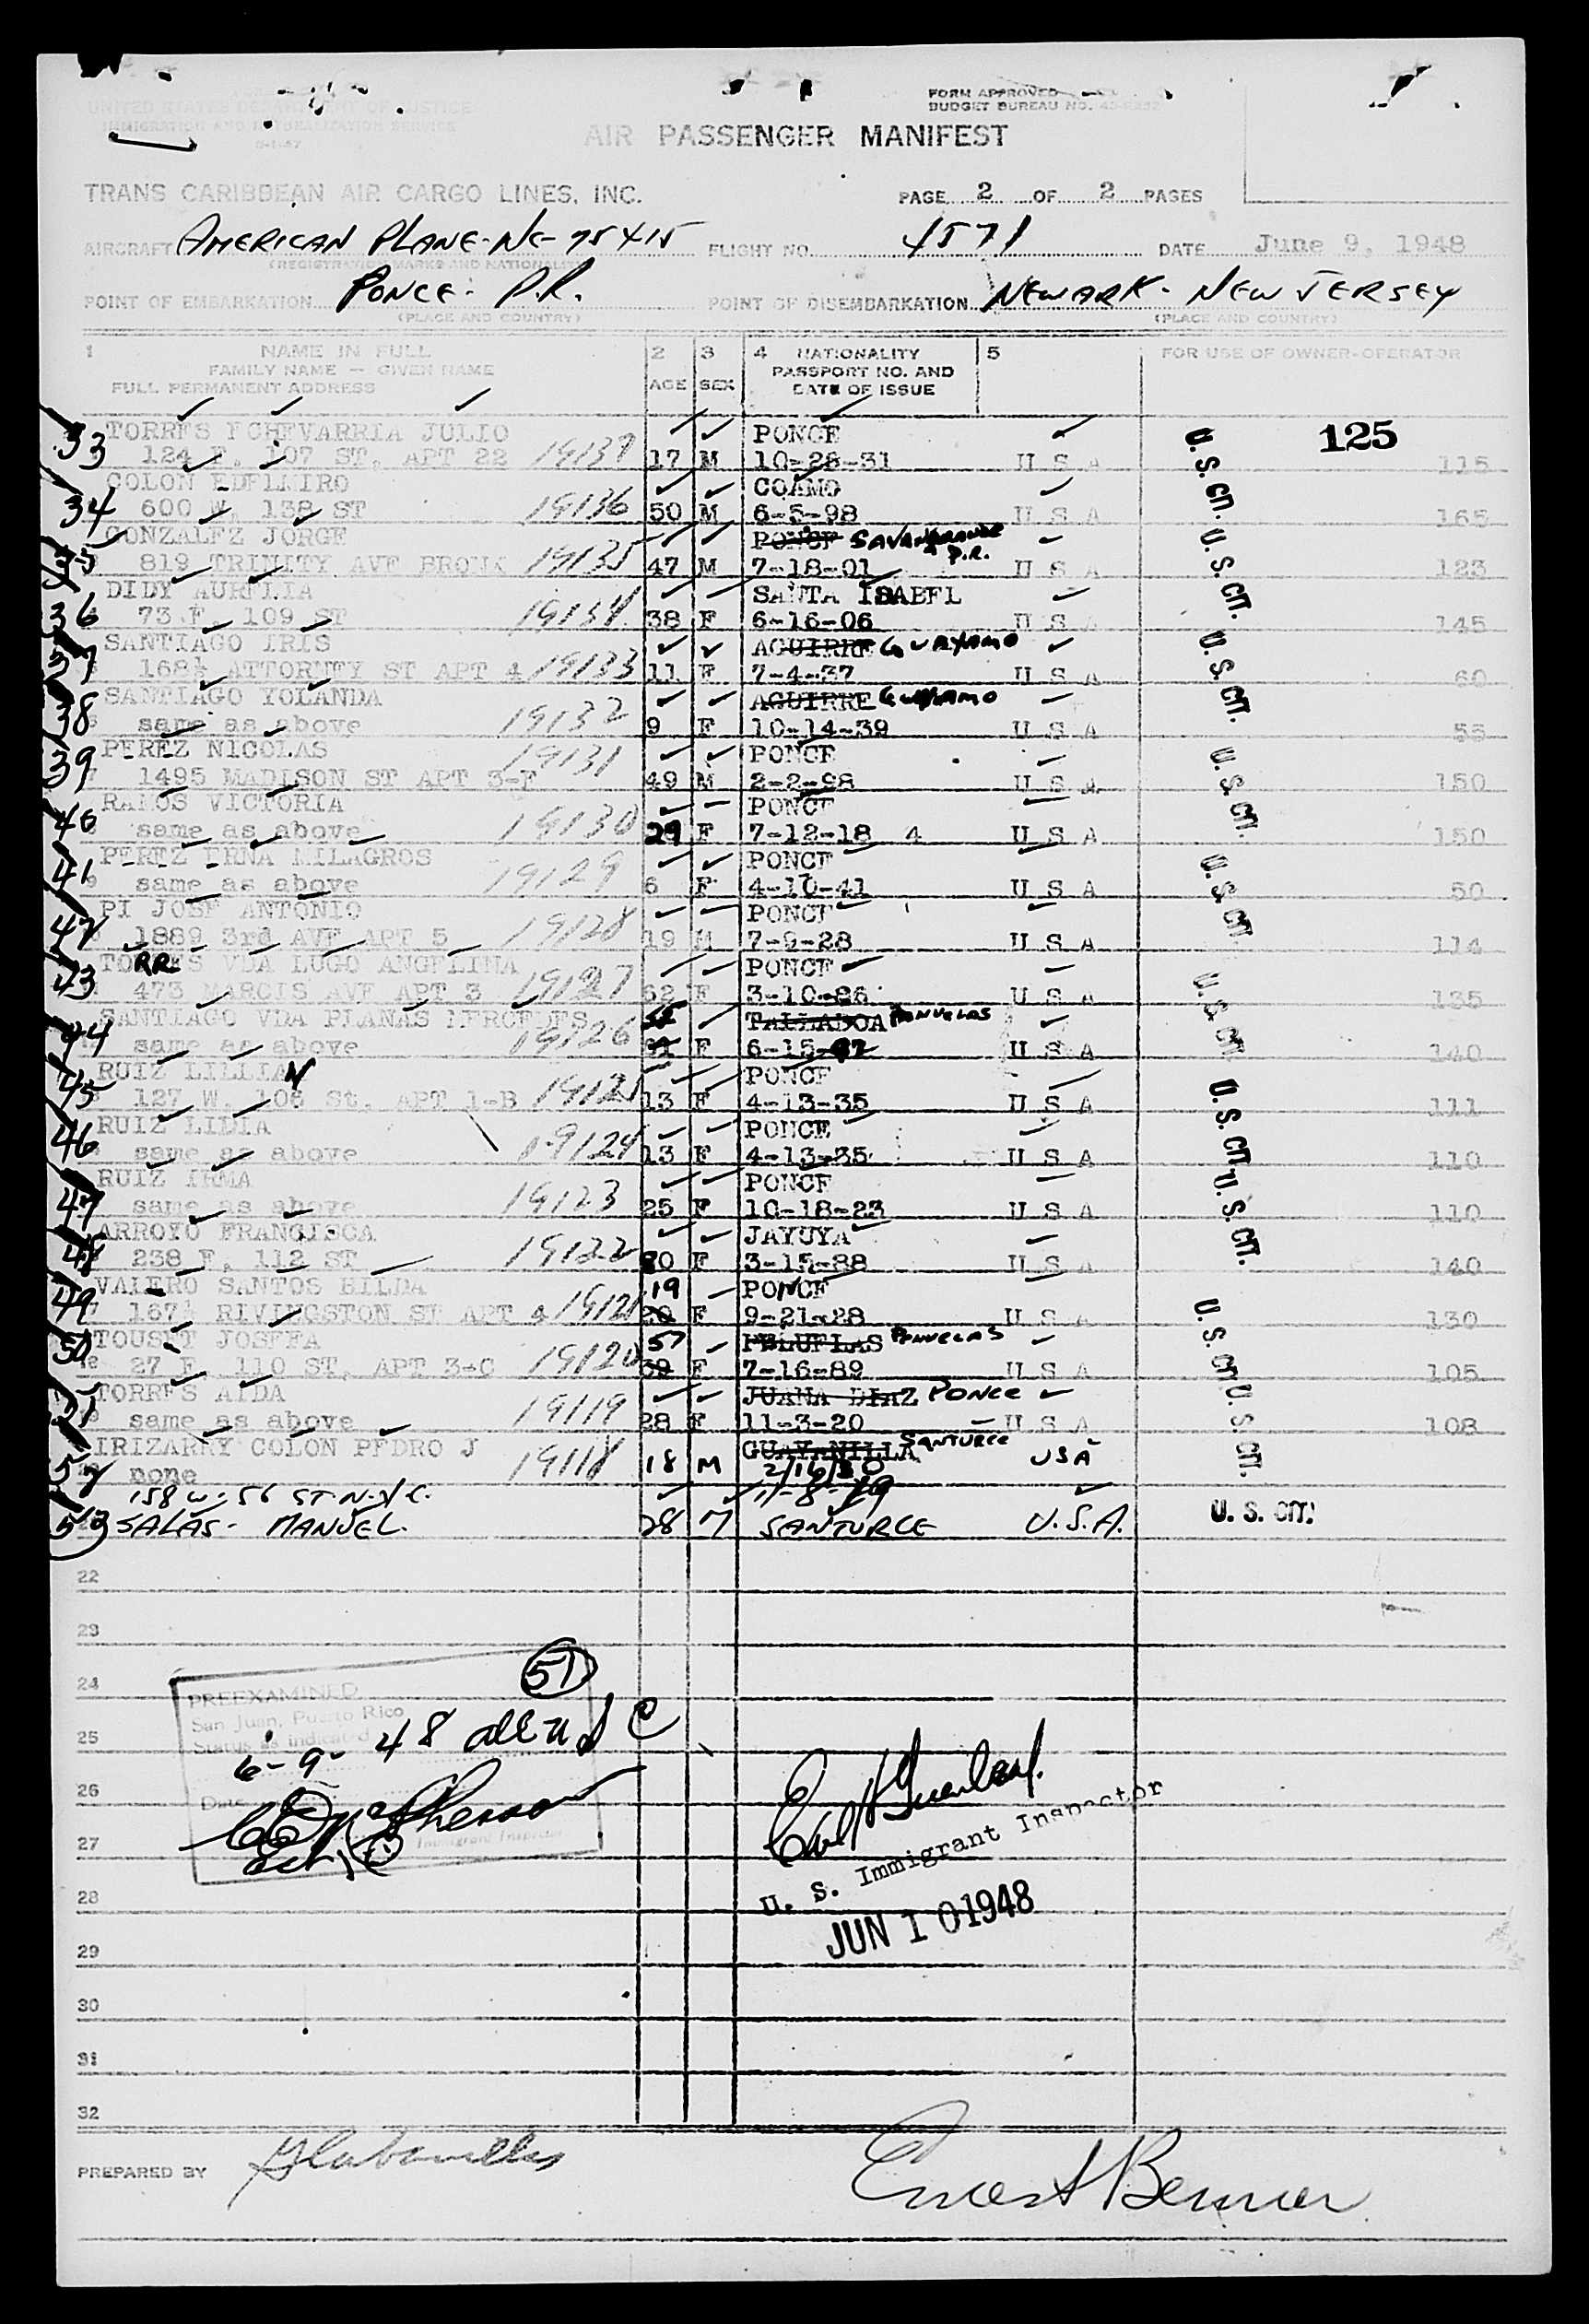 UNITED STATES DEPARTMENT OF JUSTICE
IMMIGRATION AND NATURALIZATION SERVICE
FORM APPROVED
BUDGET BUREAU NO.
AIR PASSENGER MANIFEST
TRANS CARIBBEAN AIR CARGO LINES, INC.
PAGE 2 OF 2 PAGES
AIRCRAFT AMERICAN PLANE-NC-75415 FLIGHT NO. 4571 DATE June 9, 1948
(REGISTRATION MARKS AND NATIONALITY)
POINT OF EMBARKATION PONCE- P.R. POINT OF DISEMBARKATION NEWARK- NEW JERSEY
(PLACE AND COUNTRY) (PLACE AND COUNTRY)
1 NAME IN FULL 2 3 4 NATIONALITY 5 FOR USE OF OWNER-OPERATOR
FAMILY NAME — GIVEN NAME PASSPORT NO. AND
FULL PERMANENT ADDRESS AGE SEX DATE OF ISSUE
33 TORRES ECHEVARRIA JULIO PONCE U. S. CIT. 125
124 E. 107 ST, APT 22 19137 17 M 10-28-31 U S A 115
34 COLON EDELMIRO COAMO
600 W. 138 ST 19136 50 M 6-5-98 U S A 165
35 GONZALEZ JORGE PONCE P.R. U. S. CIT.
819 TRINITY AVE BRONX 19135 47 M 7-18-01 U S A 123
36 DIDY AURELIA SANTA ISABEL
73 E. 109 ST 19134 38 F 6-16-06 U S A 145
37 SANTIAGO IRIS AGUIRRE GUAYAMO U. S. CIT.
168½ ATTORNEY ST APT 4 19133 11 F 7-4-37 U S A 60
38 SANTIAGO YOLANDA AGUIRRE GUAYAMO
same as above 19132 9 F 10-14-39 U S A 55
39 PEREZ NICOLAS 19131 PONCE U. S. CIT.
1495 MADISON ST APT 3-F 49 M 2-2-98 U S A 150
40 RAMOS VICTORIA PONCE
same as above 19130 29 F 7-12-18 4 U S A 150
41 PEREZ ERNA MILAGROS PONCE U. S. CIT.
same as above 19129 6 F 4-10-41 U S A 50
42 PI JOSE ANTONIO PONCE
1889 3rd AVE APT 5 19128 19 M 7-9-28 U S A 114
43 TORRES VDA LUGO ANGELINA PONCE U. S. CIT.
473 MARCIS AVE APT 3 19127 62 F 3-10-86 U S A 135
44 SANTIAGO VDA PLANAS MERCEDES TALLABOA PENUELAS
same as above 19126 51 F 6-15-97 U S A 140
45 RUIZ LILLIAN PONCE U. S. CIT.
127 W. 106 St, APT 1-B 19125 13 F 4-13-35 U S A 111
46 RUIZ LIDIA PONCE
same as above 19124 13 F 4-13-35 U S A 110
47 RUIZ IRMA PONCE U. S. CIT.
same as above 19123 25 F 10-18-23 U S A 110
48 ARROYO FRANCISCA JAYUYA
238 E. 112 ST 19122 F 3-15-88 U S A 140
49 VALERO SANTOS HILDA 19 PONCE U. S. CIT.
167½ RIVINGSTON ST APT 4 19121 20 F 9-21-28 U S A 130
50 TOUSET JOSEFA 57 PELUELAS PENUELAS
27 E. 110 ST, APT 3-C 19120 39 F 7-16-89 U S A 105
51 TORRES AIDA JUANA DIAZ PONCE U. S. CIT.
same as above 19119 28 F 11-3-20 U S A 108
52 IRIZARRY COLON PEDRO J GUAYANILLA SANTURCE
none 19118 18 M 2/16/30 USA
158 W. 56 ST. N.Y.C. 11-8-19
53 SALAS- MANUEL. 28 M SANTURCE U.S.A. U. S. CIT.
22
23
24
25
26
27
28
29
30
31
32
51
PREEXAMINED
San Juan, Puerto Rico
Status as indicated
6-9-48 all U S C
Date
Immigrant Inspector
U. S. Immigrant Inspector
JUN 10 1948
PREPARED BY
Ernest Benner